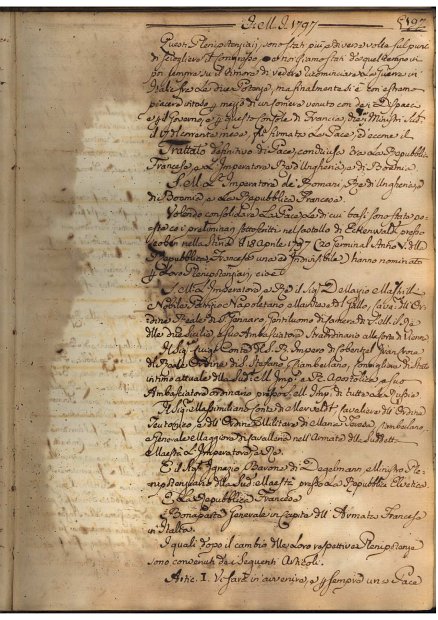 1797
Questi Plenipotenziarj sono stati più, e diverse volte sul punto
di sciogliere il Congresso, e noi siamo stati da quel tempo in
poi sempre su il timore di vedere cominciare la Guerra in
Italia fra le due Potenze, ma finalmente si è con estremo
piacere
e di questo Console di Francia, dai Ministri
il 17 del corrente mese, fu firmata la Pace, ed eccone il
Trattato definitivo di Pace, conchiuso tra la Repubblica
Francese, e l'Imperatore Re d'Ungheria, e di Boemia
S. M. l'Imperatore de' Romani, Re di Ungheria, e
di Boemia, e la Repubblica Francese
Volendo consolidare la Pace, le di cui basi sono state
ne' preliminari sottoscritti nel Castello di Eckenwald
li 18 Aprile 1797 Anno V. della
Repubblica Francese una ed Indivisibile, hanno nominato
per loro Plenipotenziarj, cioè
S. M. l'Imperatore, e Re il Sig. D. Marzio Mastrilli
Nobile Patrizio Napoletano Marchese di Gallo, Cav. dell'Or-
dine Reale di S. Gennaro, Gentiluomo di Camera di S. M. il Re
delle due Sicilie, e suo Ambasciatore Straordinario alla Corte di Vienna
Il Sig. Luigi Conte del S. R. Impero di Cobentzel Gran Croce
dell'Ordine di S. Stefano, Ciambelano, Consigliere di Stato
intimo attuale della Sud. M. Imp. e R. Apostolica, e suo
Ambasciatore Straordinario presso S. M. Imp. di tutte le Russie
Il Sig. Massimiliano Conte di Merveldt, Cavaliere dell'Ordine
Teutonico, e dell'Ordine Militare di Maria Teresa, Ciambelano,
e Generale Maggiore di Cavalleria nell'Armata della Suddetta
Maestà l'Imperatore, e Re.
E il Sig. Ignazio Barone di Degelmann Ministro Ple-
nipotenziario della Sud. Maestà presso la Repubblica Elvetica
E la Repubblica Francese
Bonaparte Generale in Capite dell'Armata Francese
in Italia.
I quali dopo il cambio delle loro rispettive Plenipotenze
sono convenuti de' seguenti Articoli.
Artic. I. Vi sarà in avvenire, e per sempre una Pace